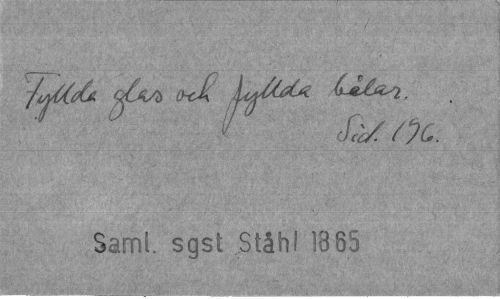 Fyllda glas och fyllda bålar.
Sid. 196.
Saml. sgst Ståhl 1865